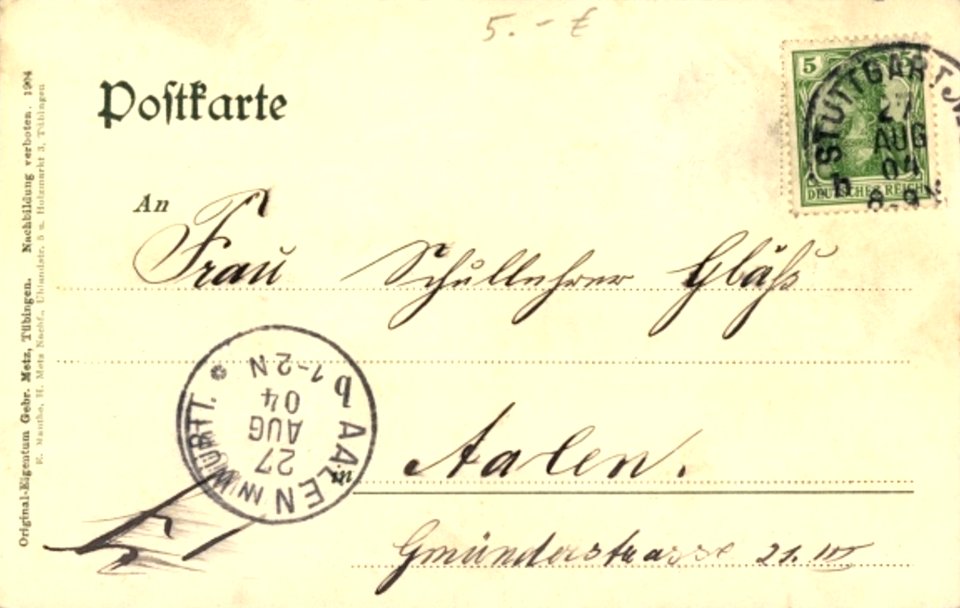 5.- €
Postkarte
5
STUTTGART
27
AUG
04
8-9
b
DEUTSCHES REICH
An
Frau Schullehrer Gläss
AALEN IN WÜRTT. * b
27
AUG
04
1-2 N
in Aalen.
Gmünderstrasse 21. III
Original-Eigentum Gebr. Metz, Tübingen. Nachbildung verboten. 1904
H. Metz Nachf., Uhlandstr. 5 u. Holzmarkt 3, Tübingen